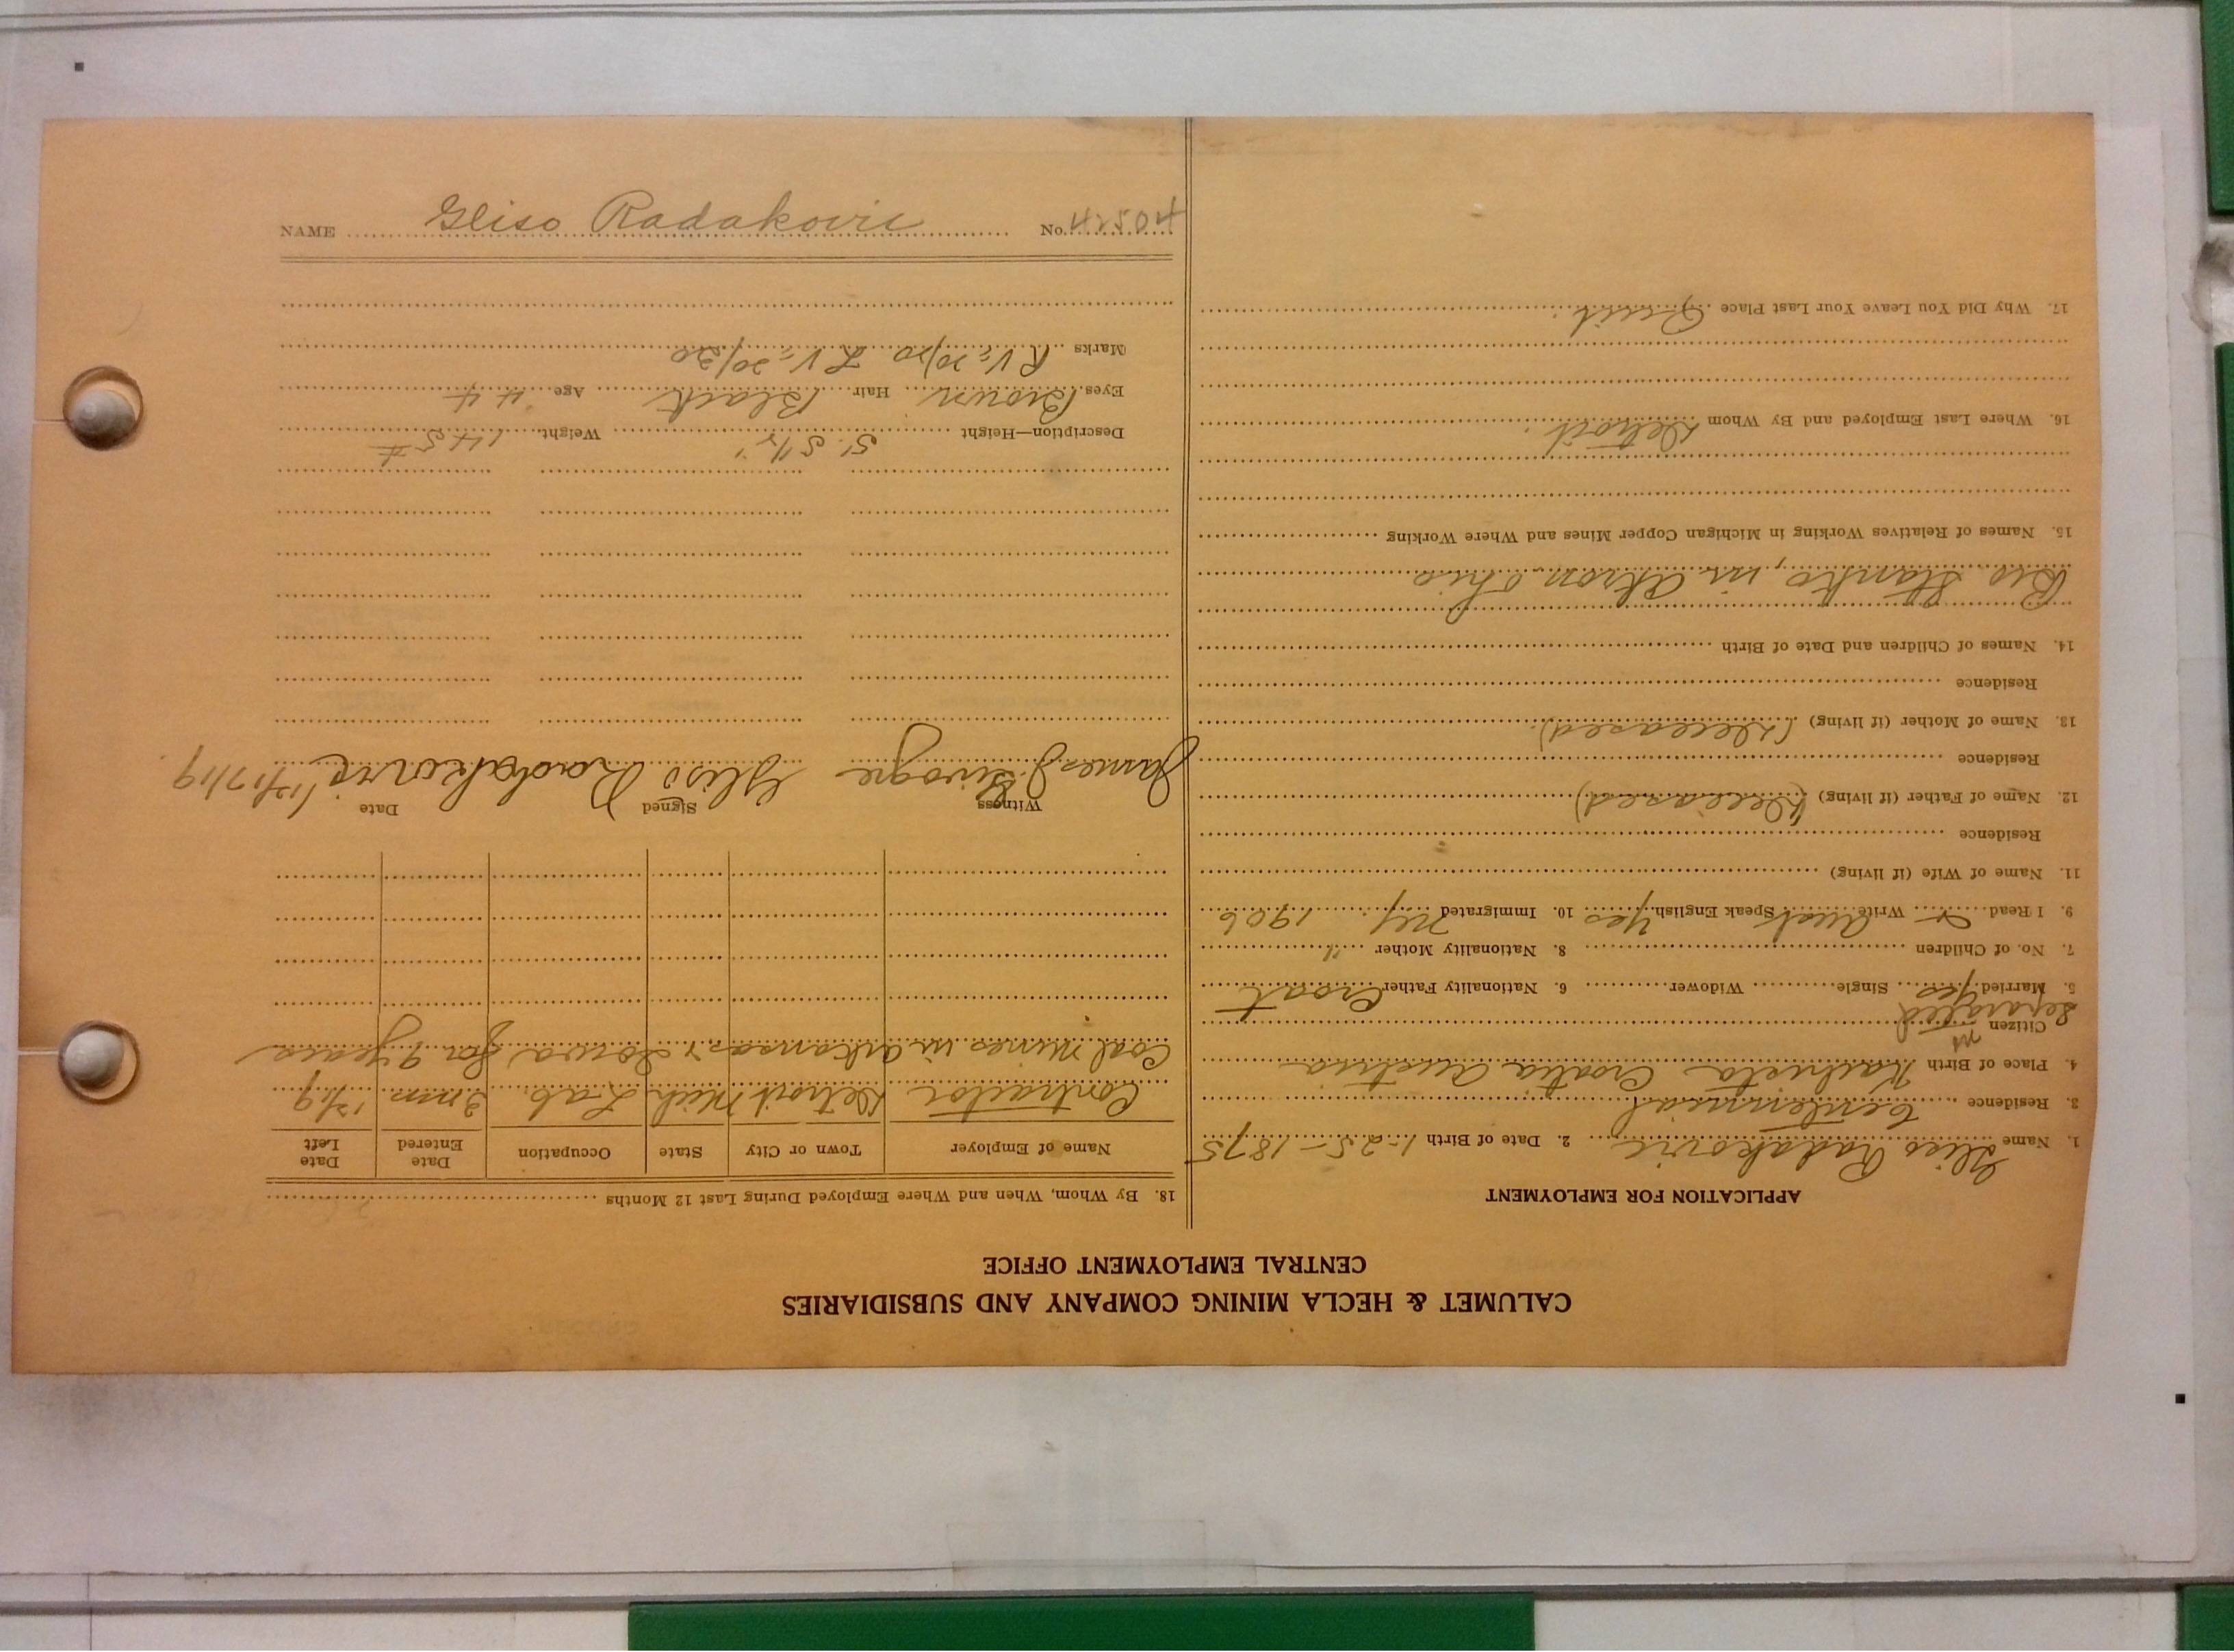 CALUMET & HECLA MINING COMPANY AND SUBSIDIARIES
CENTRAL EMPLOYMENT OFFICE
APPLICATION FOR EMPLOYMENT
1. Name Gliso Radakovic 2. Date of Birth 1-25-1875
3. Residence Centennial
4. Place of Birth Croatia Austria
Citizen
Separated
5. Married yes Single Widower 6. Nationality Father Croat
7. No. of Children 8. Nationality Mother "
9. I Read & Write Aust Speak English yes 10. Immigrated NY 1906
11. Name of Wife (if living)
Residence
12. Name of Father (if living) (Deceased)
Residence
13. Name of Mother (if living) (Deceased)
Residence
14. Names of Children and Date of Birth
Bro Stanko, in Akron Ohio
15. Names of Relatives Working in Michigan Copper Mines and Where Working
16. Where Last Employed and By Whom Detroit
17. Why Did You Leave Your Last Place Quit
18. By Whom, When and Where Employed During Last 12 Months
Name of Employer Town or City State Occupation Date Entered Date Left
Contractor Detroit Mich Lab. 3 mn. 12/19
Coal mines in Arkansas & Iowa for 9 years
Witness Signed Date
James J. Gliso Radakovic 12/17/19
Description—Height 5' 5 1/2" Weight 145 #
Eyes Brown Hair Black Age 44
Marks R V = 20/20 L V = 20/30
NAME Gliso Radakovic No. 42504